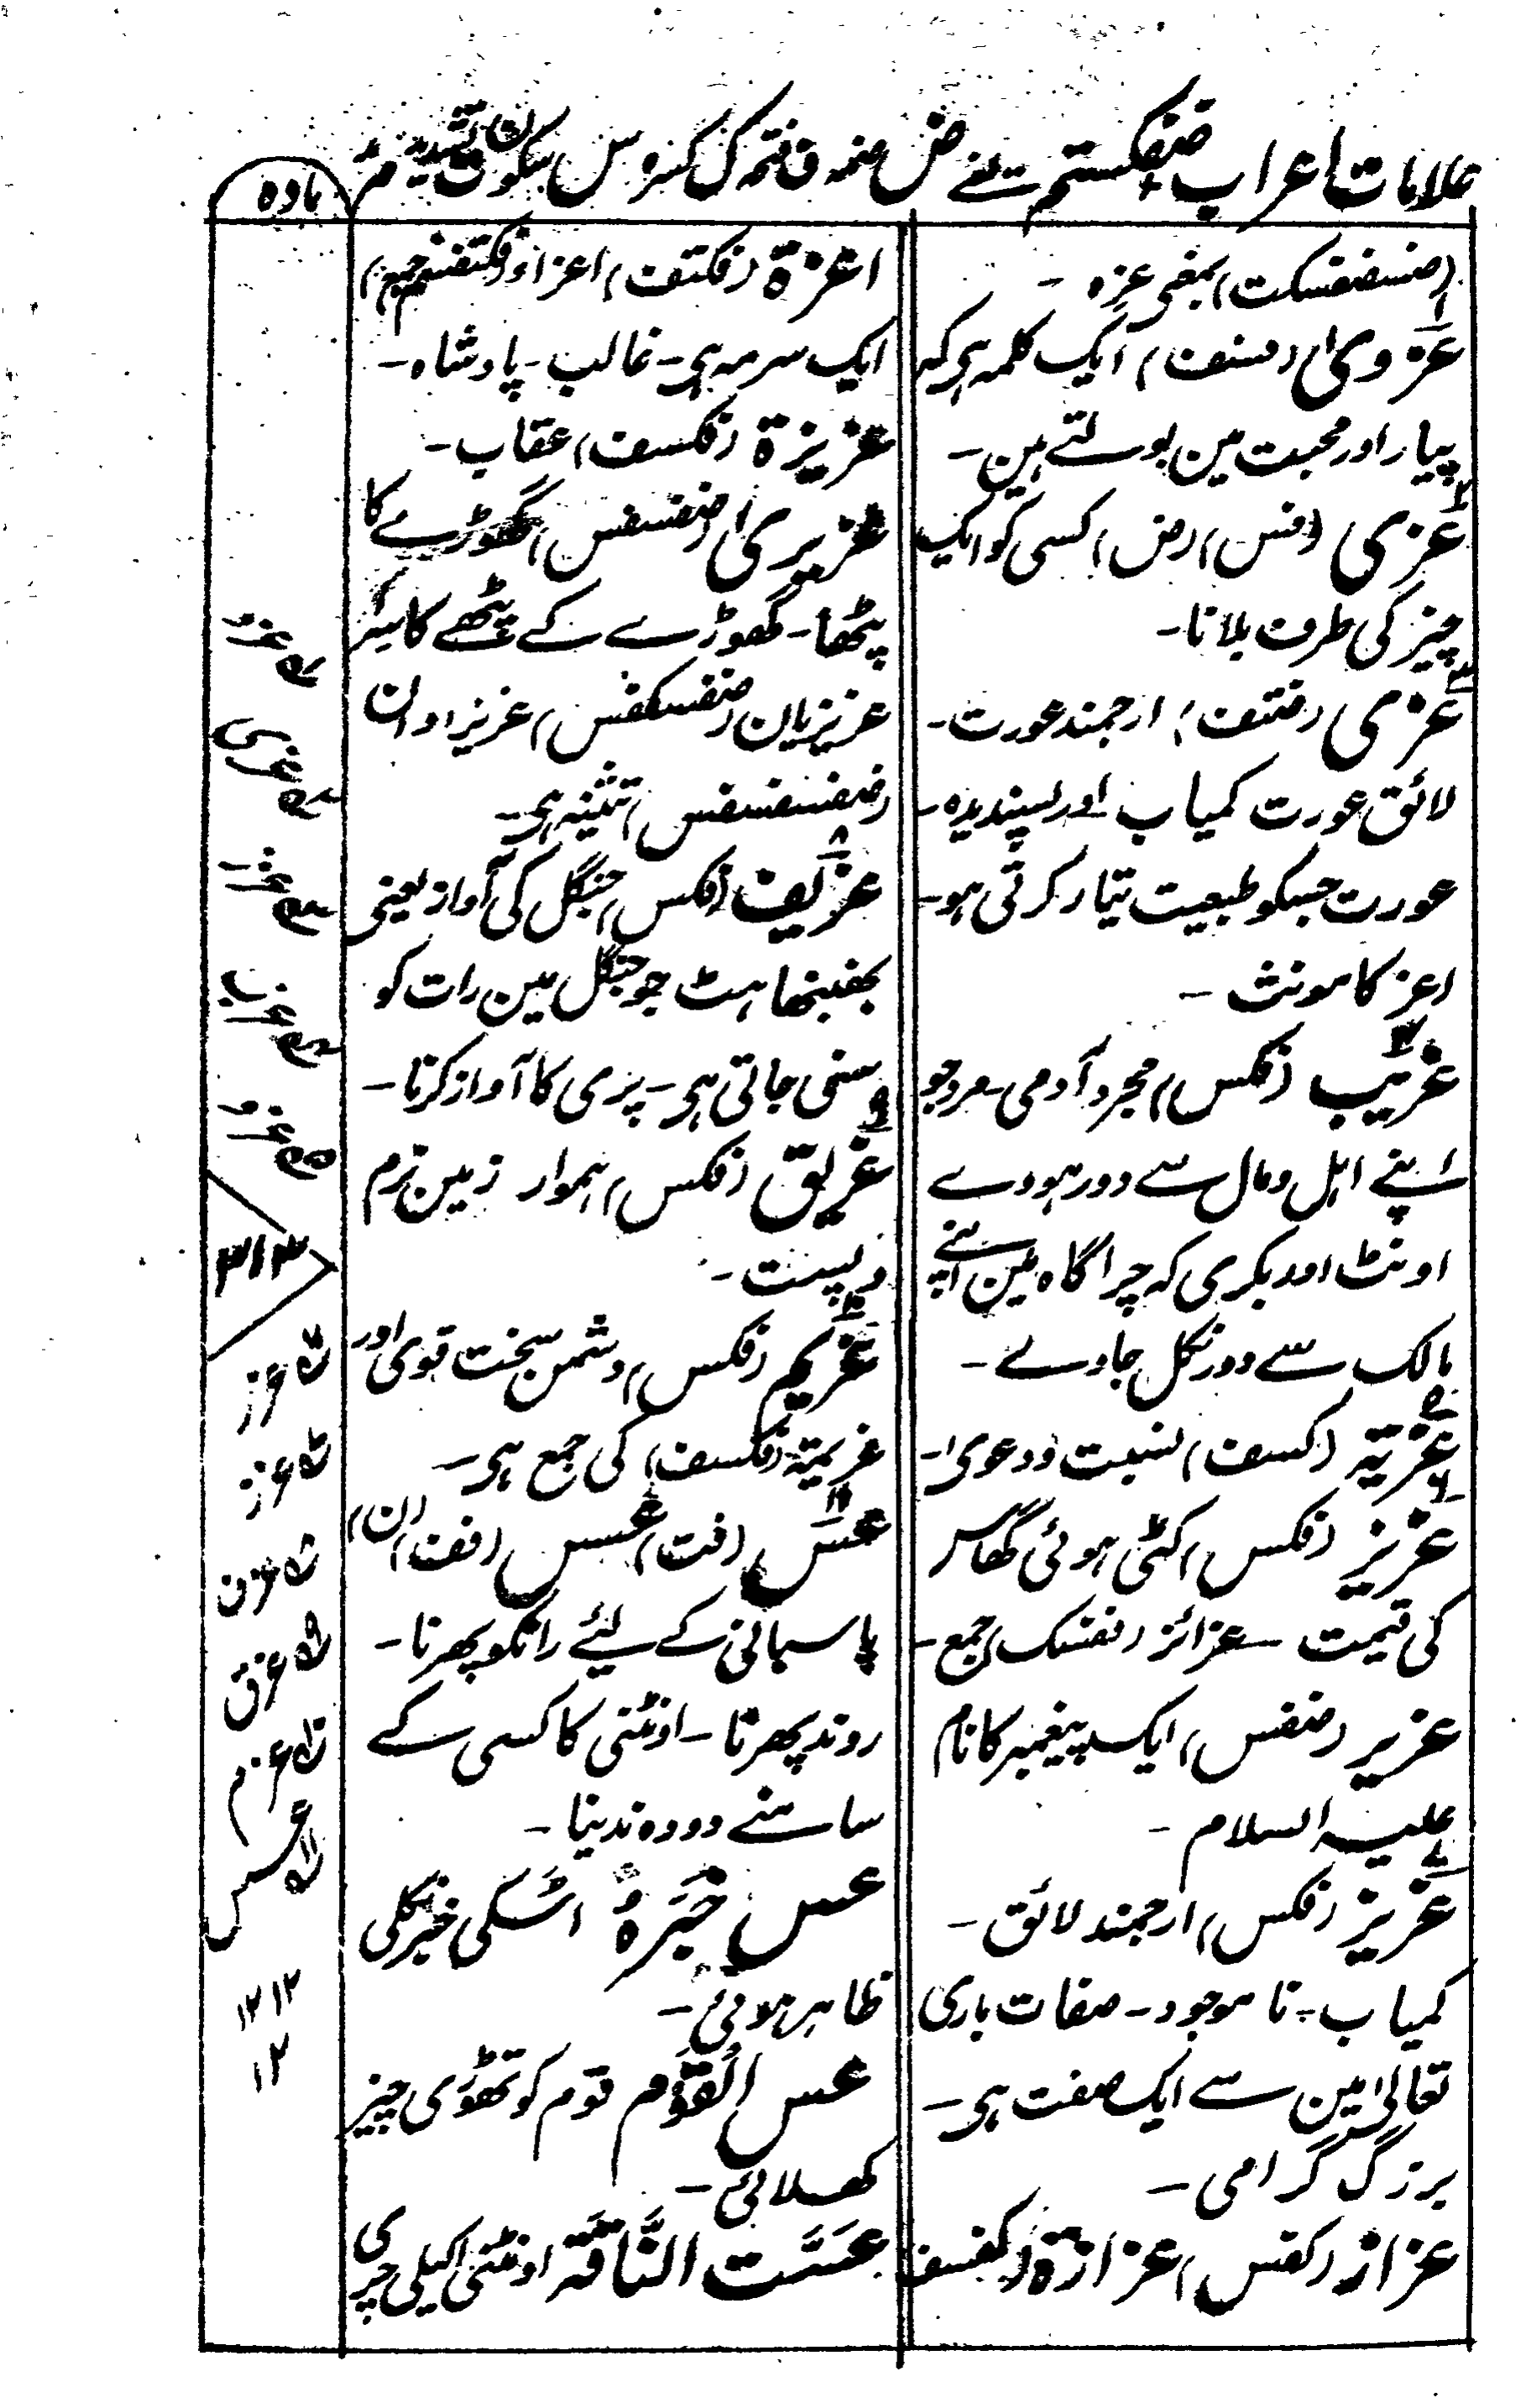 علامات اعراب ضفکستم یعنے ض ضمہ ف فتحہ ک کسرہ س سکون ت تشدید م مد
مادہ
(ضسفضفسکت) بمعنی عزہ -
عَزوی (فسف) ایک کلمہ ہی کہ
پیار اور محبت مین بولتے ہین -
عزی (فس) (ض) کسی کو ایک
چیز کی طرف بلانا -
عزی (فتف) ارجمند عورت -
لائق عورت کمیاب اور پسندیدہ -
عورت جسکو طبیعت تیار کرتی ہو -
اعز کا مونث -
عزیب (فکس) مجرد آدمی - مرد جو
اپنے اہل ومال سے دور ہووے
اونٹ اور بکری کہ چراگاہ مین اپنے
مالک سے دور نکل جاوے -
عزیۃ (کسف) نسبت ودعوی -
عزیز (فکس) کٹی ہوئی گھاس
کی قیمت - عزائز (ففسک) جمع -
عزیر (ضفس) ایک پیغمبر کا نام
علیہ السلام -
عزیز (فکس) ارجمند لائق -
کمیاب - نا موجود - صفات باری
تعالی مین سے ایک صفت ہی -
بزرگ گرامی -
عزاز (کفس) عزازۃ (کفسف
اعزۃ (فکتف) اعزاء (فکتفسم) جمع
ایک سرمہ ہی - غالب - پادشاہ -
عزیزۃ (فکسف) عقاب -
عزیزی (ضفسفس) گھوڑے کا
پٹھا - گھوڑے کے پٹھے کا سرا
عزیزیان (ضفسکفس) عزیزاوان
(ضفسفسفس) تثنیہ ہی -
عزیف (فکس) جنگل کی آواز یعنی
بھنبھناہٹ جو جنگل مین رات کو
سنی جاتی ہی - پری کا آواز کرنا -
عزیق (فکس) ہموار زمین نرم
و پست -
عزیم (فکس) دشمن سخت قوی اور
عزیمۃ (فکسف) کی جمع ہی -
عسّ (فت) عسس (فف) (ن)
پاسبانی کے لئے راتکو پھرنا -
روند پھرنا - اونٹنی کا کسی کے
سامنے دودہ ندینا -
عس خَبَرَہٗ اسکی خبر نکلی
ظاہر ہوئی -
عس القوم قوم کو تھوڑی چیز
کھلائی -
عسَّت النَّاقۃ اونٹنی اکیلی چری
۳۱۳
عزز
عزز
عزف
عزق
عزم
عسس
۱۲ ۱۲
۱۲